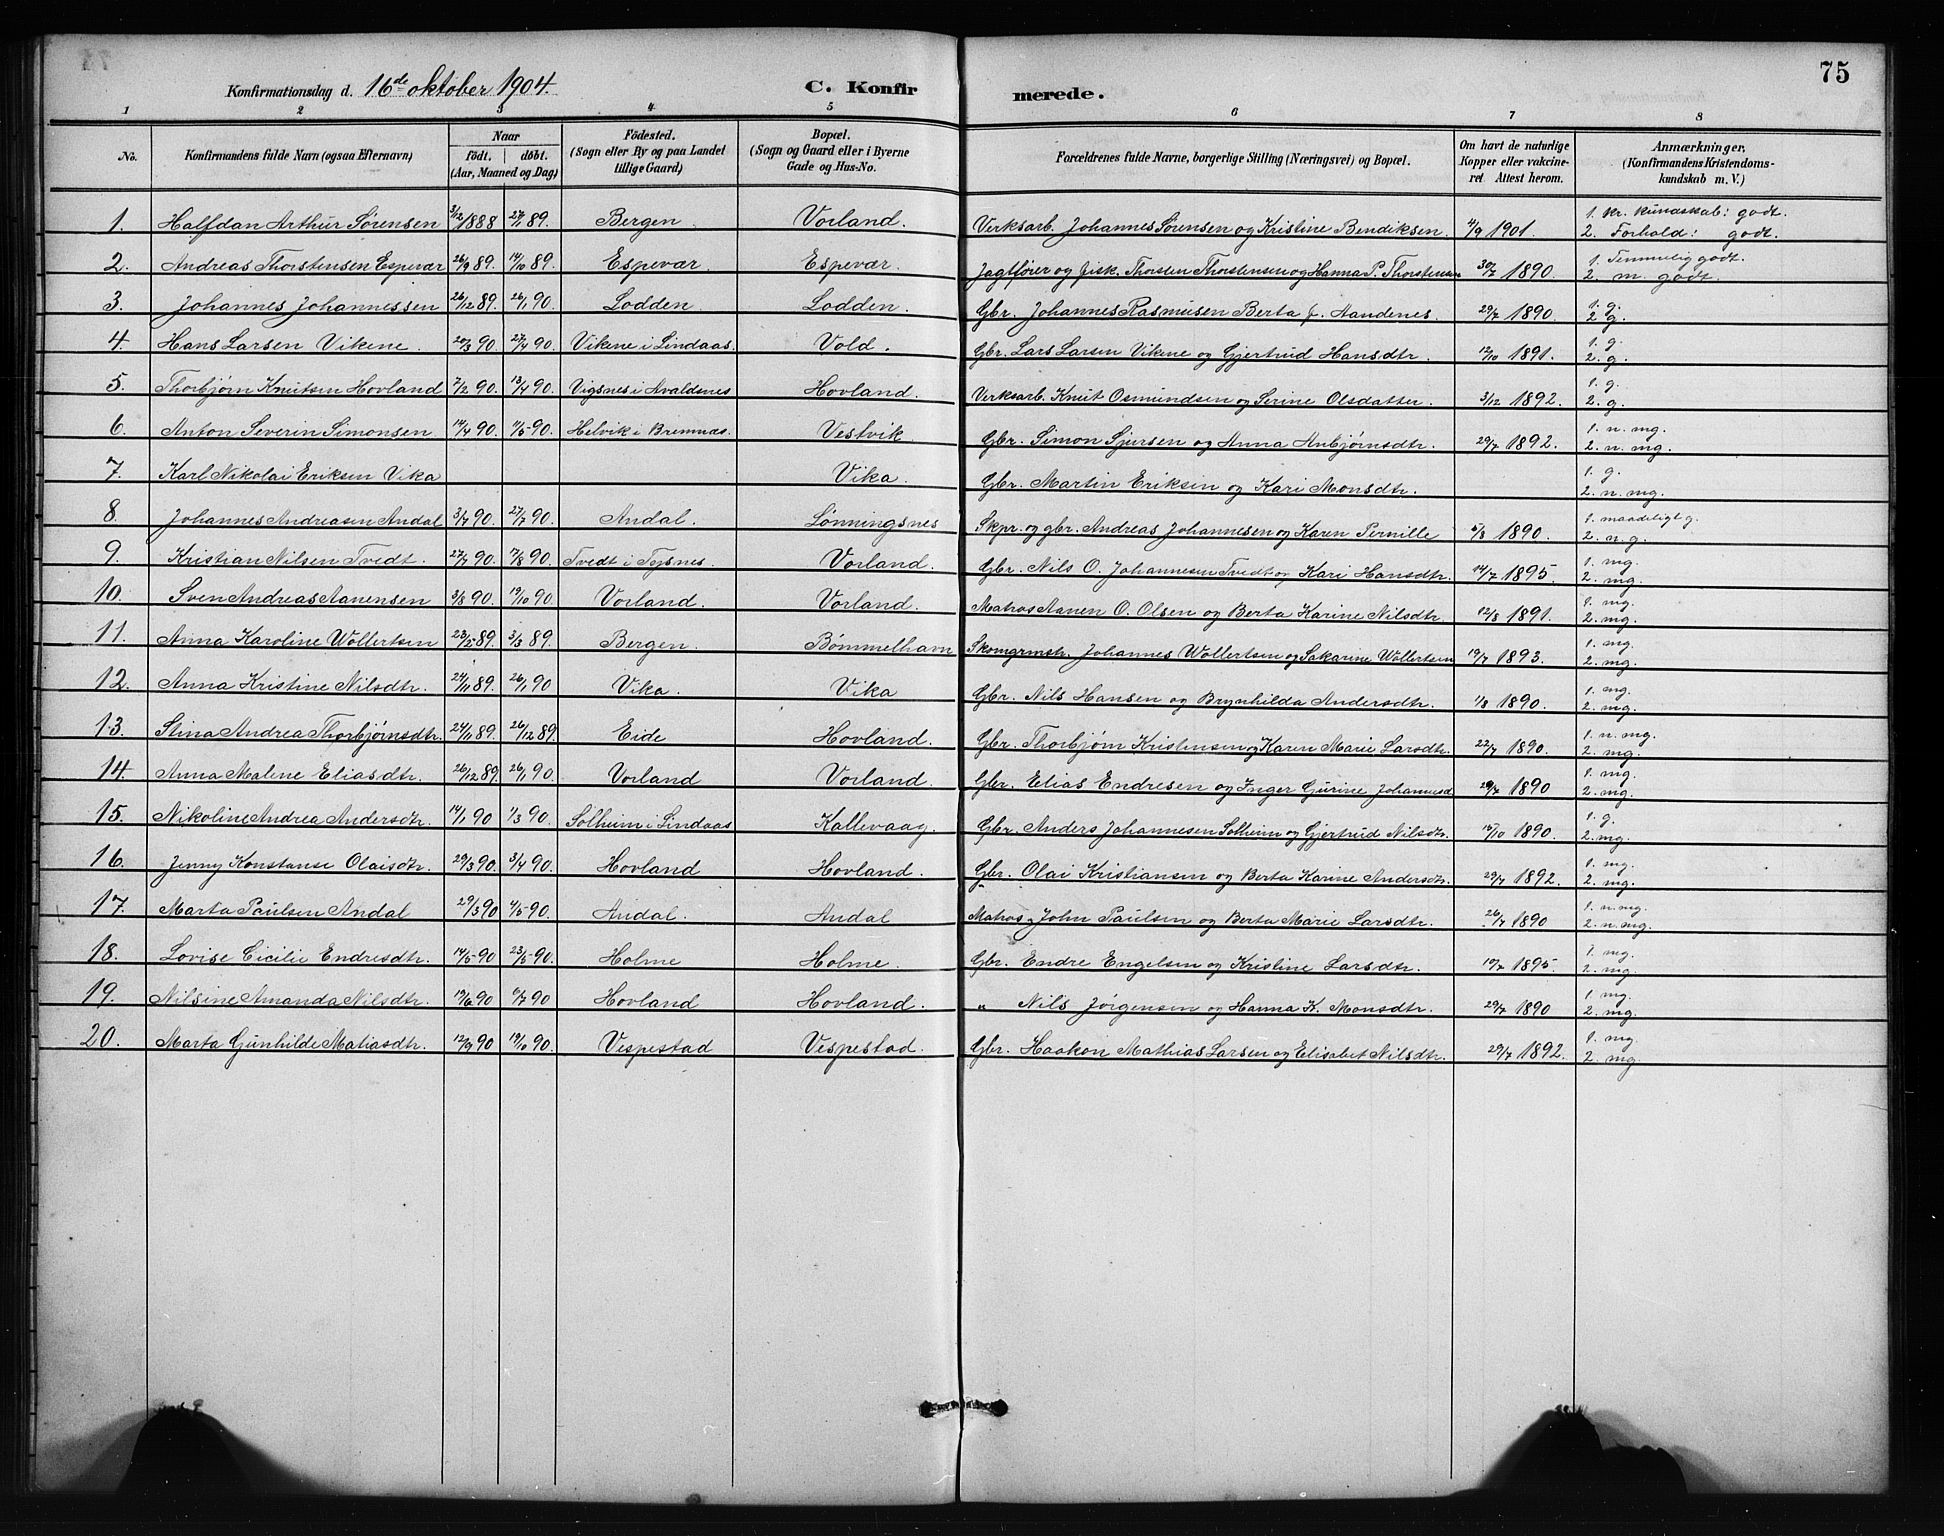 75
Konfirmationsdag d. 16de oktober 1904. C. Konfirmerede.
1 2 3 4 5 6 7 8
No. Konfirmandens fulde Navn (ogsaa Efternavn) Naar født. | døbt. (Aar, Maaned og Dag) Födested. (Sogn eller By og paa Landet tillige Gaard) Bopæl. (Sogn og Gaard eller i Byerne Gade og Hus-No. Forældrenes fulde Navne, borgerlige Stilling (Næringsvei) og Bopæl. Om havt de naturlige Kopper eller vakcineret Attest herom. Anmærkninger, (Konfirmandens Kristendomskundskab m. V.)
1. Halfdan Arthur Sørensen 3/12 1888 27/1 89. Bergen. Vorland. Verksarb. Johannes Sørensen og Kristine Bendiksen. 4/9 1901. 1. kr. kundskab: godt. 2. Forhold: godt.
2. Andreas Thorstensen Espevær 26/9 89. 14/10 89. Espevær. Espevær. Jagtfører og fisk. Thorsten Thorstensen og Hanna P. Thorstensen 30/7 1890. 1. Temmelig godt. 2. m. godt.
3. Johannes Johannessen 26/12 89. 26/1 90. Lodden. Lodden. Gbr. Johannes Rasmusen Berta f. Aandenes. 29/7 1890. 1. g. 2. g.
4. Hans Larsen Vikene. 20/3 90. 27/4 90. Vikene i Lindaas. Vold. Gbr. Lars Larsen Vikene og Gjertrud Hansdtr. 12/10 1891. 1. g. 2. g.
5. Thorbjørn Knutsen Hovland 7/2 90. 13/4 90. Vigsnes i Avaldsnes Hovland. Verksarb. Knut Osmundsen og Serine Olsdatter. 3/12 1892. 1. g. 2. g.
6. Anton Severin Simonsen. 14/4 90. 11/5 90. Helvik i Bremnæs. Vestvik. Gbr. Simon Sjursen og Anna Anbjørnsdtr. 29/7 1892. 1. n. mg. 2. n. mg.
7. Karl Nikolai Eriksen Vika Vika. Gbr. Martin Eriksen og Kari Monsdtr. 1. g. 2. n. mg.
8. Johannes Andreasen Andal 3/7 90. 27/7 90. Andal. Lønningsnes Skpr. og gbr. Andreas Johannesen og Karen Pernille 1890. 1. maadeligt g. 2. n. g.
9. Kristian Nilsen Tvedt. 27/7 90. 17/8 90. Tvedt i Tysnes. Vorland. Gbr. Nils O. Johannesen Tvedt og Kari Hansdtr. 14/7 1895. 1. mg. 2. mg.
10. Sven Andreas Aanensen 3/8 90. 19/10 90. Vorland. Vorland. Matros Aanen O. Olsen og Berta Karine Nilsdtr. 12/8 1891. 1. mg. 2. mg.
11. Anna Karoline Wollertsen 89. 3/3 89. Bergen. Bømmelhavn Skomgrmstr. Johannes Wollertsen og Sakarine Wollertsen 19/7 1893. 1. mg. 2. mg.
12. Anna Kristine Nilsdtr. 24/11 89. 26/1 90 Vika. Vika Gbr. Nils Hansen og Brynhilda Andersdtr. 1/8 1890. 1. mg. 2. mg.
13. Stina Andrea Thorbjørnsdtr. 24/11 89. 26/12 89. Eide Hovland. Gbr. Thorbjørn Kristensen og Karen Marie Larsdtr. 22/7 1890. 1. n. mg. 2. mg.
14. Anna Malene Eliasdtr. 26/12 89. 26/1 90. Vorland Vorland. Gbr. Elias Endresen og Inger Gurine Johannesd 29/7 1890 1. mg. 2. mg.
15. Nikoline Andrea Andersdtr. 14/1 90 1/3 90. Solheim i Lindaas Kallevaag. Gbr. Anders Johannesen Solheim og Gjertrud Nilsdtr. 15/10 1890. 1. g. 2. mg.
16. Jenny Konstanse Olaisdtr. 29/3 90. 3/4 90. Hovland Hovland. Gbr. Olai Kristiansen og Berta Karine Andersdtr. 29/7 1892. 1. mg. 2. mg.
17. Marta Paulsen Andal 29/3 90 4/5 90. Andal. Andal Matros John Paulsen og Berta Marie Larsdtr. 26/7 1890 1. n. mg. 2. n. mg.
18. Lovise Cicilie Endresdtr. 14/5 90 23/5 90. Holme Holme. Gbr. Endre Engelsen og Kristine Larsdtr. 10/7 1895. 1. mg. 2. mg.
19. Nilsine Amanda Nilsdtr. 19/6 90 6/7 90 Hovland Hovland. " Nils Jørgensen og Hanna K. Monsdtr. 29/7 1890 1. mg. 2. mg.
20. Marta Gunhilde Matiasdtr. 12/9 90 19/10 90. Vespestad Vespestad. Gbr. Haakon Mathias Larsen og Elisabet Nilsdtr. 29/7 1892. 1. mg. 2. mg.